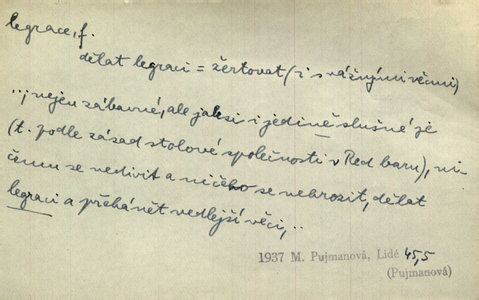 legrace, f.
dělat legraci = žertovat (i s vážnými věcmi)
..., nejen zábavné, ale jaksi i jedině slušné je
(t. podle zásad stolové společnosti v Red baru), ni
čemu se nedivit a ničeho se nehrozit, dělat
legraci a přehánět vedlejší věci, ..
1937 M. Pujmanová, Lidé 45,5
(Pujmanová)